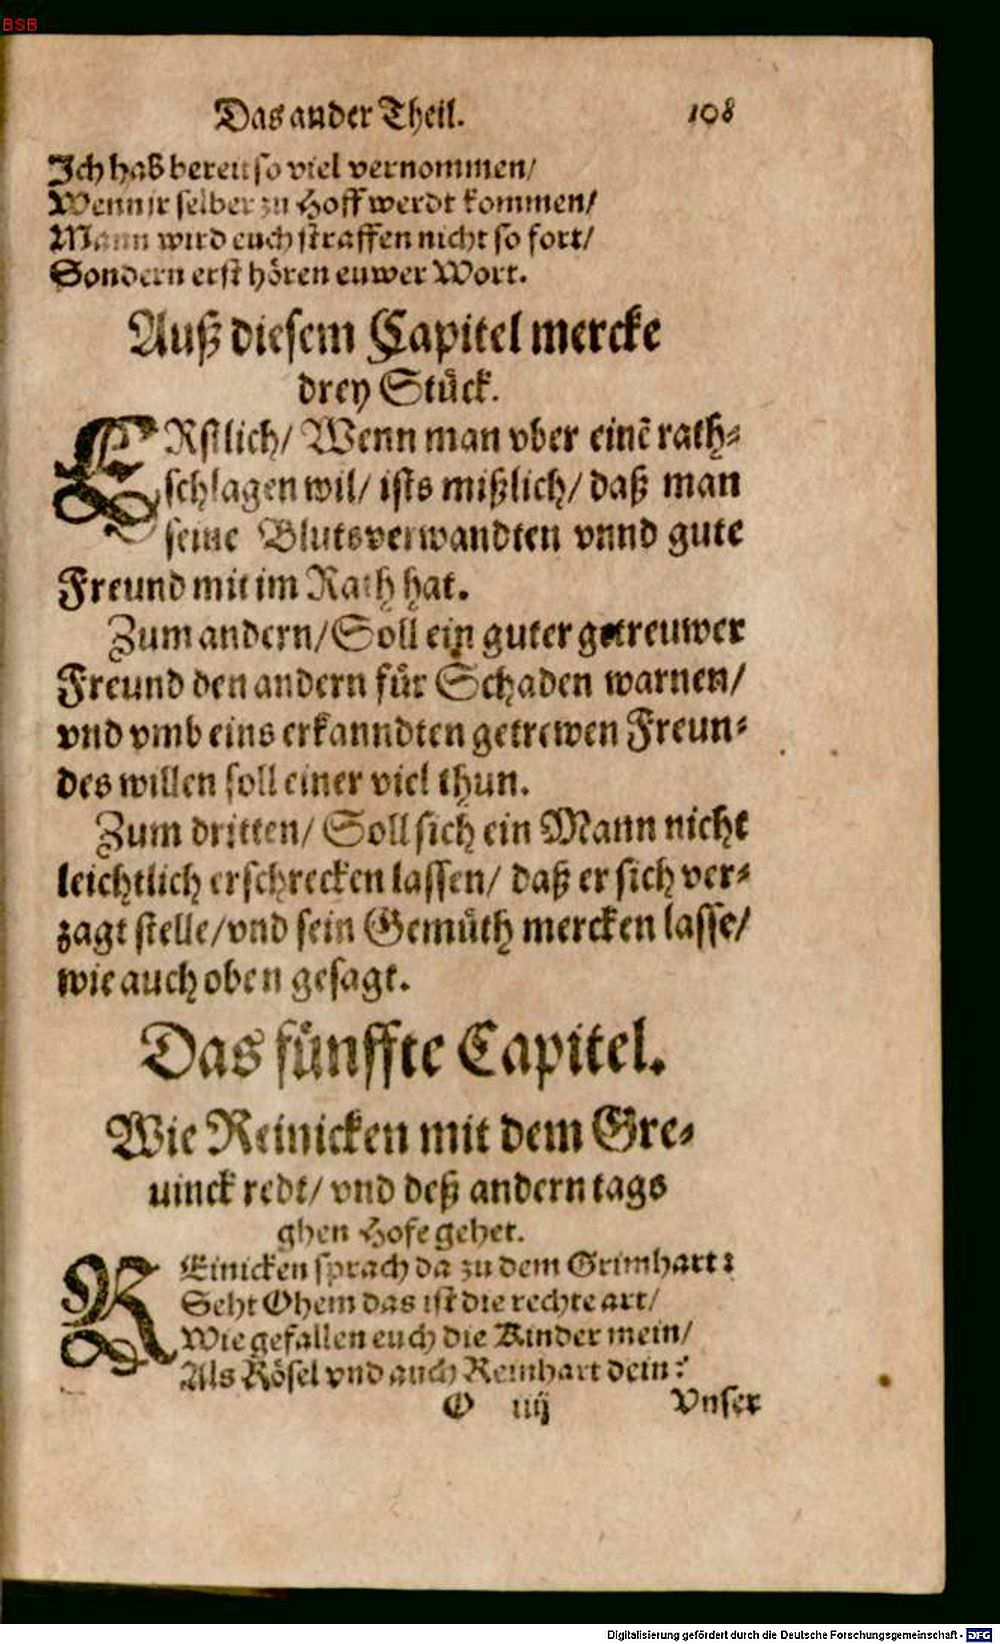 BSB
Das ander Theil. 108
Ich hab bereit so viel vernommen/
Wenn ir selber zu Hoff werdt kommen/
Mann wird euch straffen nicht so fort/
Sondern erst hören euwer Wort.
Auß diesem Capitel mercke
drey Stück.
ERstlich/ Wenn man vber einẽ rath-
schlagen wil/ ists mißlich/ daß man
seine Blutsverwandten vnnd gute
Freund mit im Rath hat.
Zum andern/ Soll ein guter getreuwer
Freund den andern für Schaden warnen/
vnd vmb eins erkanndten getrewen Freun-
des willen soll einer viel thun.
Zum dritten/ Soll sich ein Mann nicht
leichtlich erschrecken lassen/ daß er sich ver-
zagt stelle/ vnd sein Gemüth mercken lasse/
wie auch oben gesagt.
Das fünffte Capitel.
Wie Reinicken mit dem Gre-
uinck redt/ vnd deß andern tags
ghen Hofe gehet.
REinicken sprach da zu dem Grimhart:
Seht Ohem das ist die rechte art/
Wie gefallen euch die Kinder mein/
Als Rösel vnd auch Reinhart dein?
O iiij Vnser
Digitalisierung gefördert durch die Deutsche Forschungsgemeinschaft - DFG